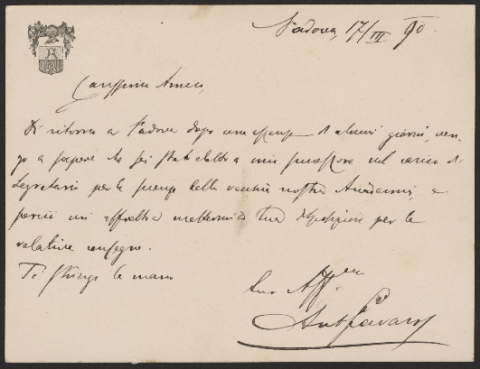 Padova, 17/III 90.
Carissimo Amico,
Di ritorno a Padova dopo una assenza di alcuni giorni, ven-
go a sapere che sei stato eletto a mio successore nel carico di
Segretario per le della vecchia nostra Accademia, e
perciò mi affretto a mettermi a tua disposizione per le
relative consegne.
Ti stringo la mano
tuo Aff.mo
Ant Favaro